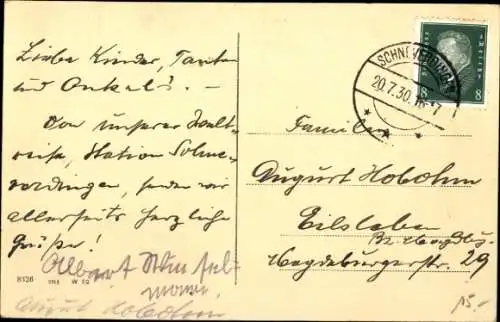 Liebe Kinder, Tanten
und Onkels! –
Von unserer Welt-
reise, Station Schne-
verdingen, senden wir
allerseits herzliche
Grüße!
Albert
mann.
August Hobohm
8126
W 12
SCHNEVERDINGEN
20.7.30.16-17
Deutsches Reich
8 8
Familie
August Hobohm
Eilsleben
Bz. Magdbg.
Magdeburgerstr. 29
15.-